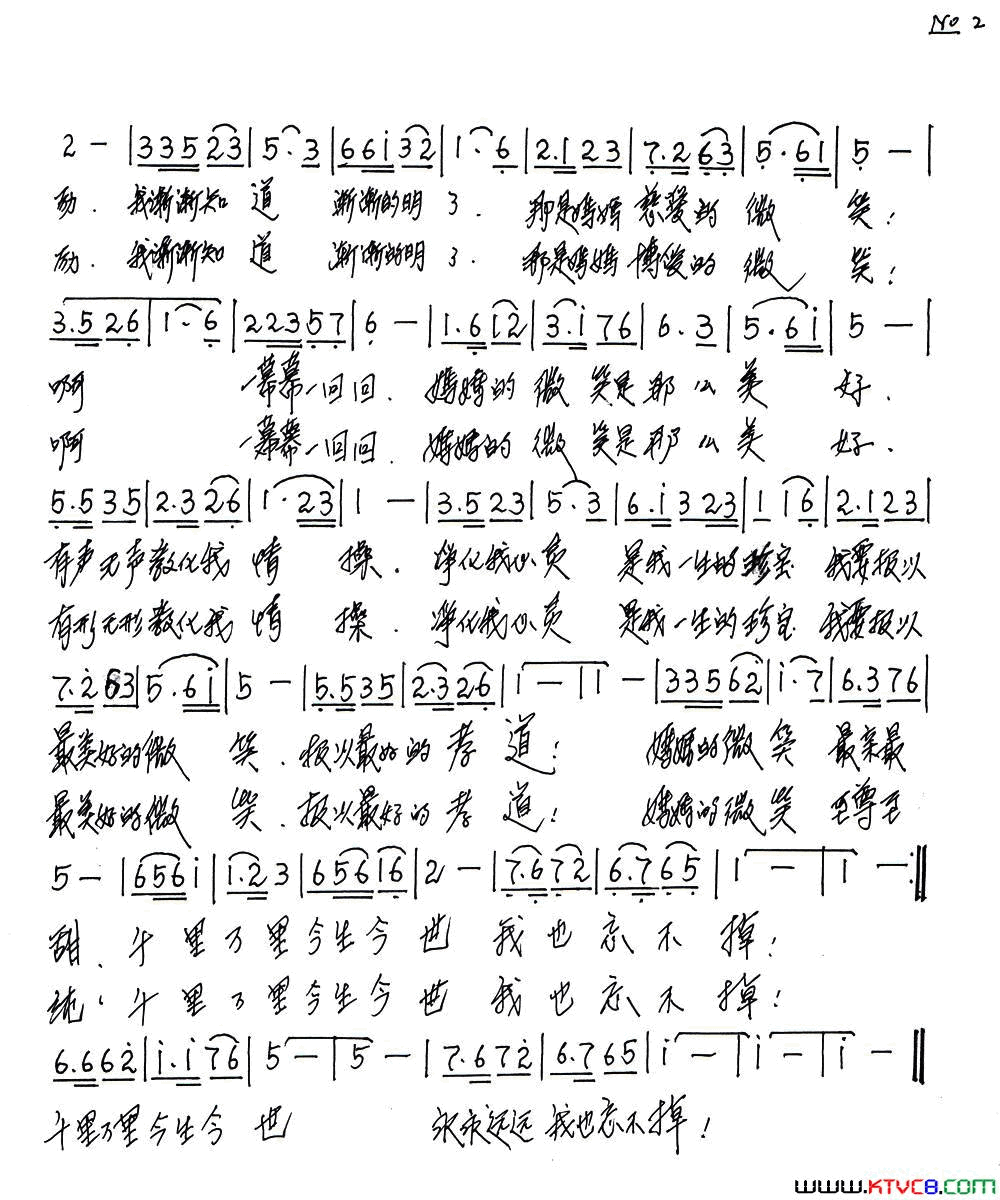 No 2
2 - | 3 3 5 2 3 | 5 · 3 | 6 6 i 3 2 | 1 · 6 | 2 . 1 2 3 | 7 . 2 6 3 | 5 · 6 1 | 5 - |
励. 我渐渐知道 渐渐的明了. 那是妈妈慈爱的微 笑!
励. 我渐渐知道 渐渐的明了. 那是妈妈博爱的微 笑!
3 . 5 2 6 | 1 · 6 | 2 2 3 5 7 | 6 - | 1 . 6 i 2 | 3 . i 7 6 | 6 . 3 | 5 . 6 i | 5 - |
啊 一幕幕一回回. 妈妈的微笑是那么美 好.
啊 一幕幕一回回. 妈妈的微笑是那么美 好.
5 . 5 3 5 | 2 . 3 2 6 | 1 · 2 3 | 1 - | 3 . 5 2 3 | 5 · 3 | 6 . i 3 2 3 | 1 1 6 | 2 . 1 2 3 |
有声无声教化我情 操. 净化我心灵 是我一生的珍宝 我要报以
有形无形教化我情 操. 净化我心灵 是我一生的珍宝 我要报以
7 . 2 6 3 | 5 . 6 i | 5 - | 5 . 5 3 5 | 2 . 3 2 6 | 1 - | 1 - | 3 3 5 6 2 | i · 7 | 6 . 3 7 6 |
最美好的微 笑. 报以最好的孝道! 妈妈的微笑 最亲最
最美好的微 笑. 报以最好的孝道! 妈妈的微笑 至尊至
5 - | 6 5 6 i | i . 2 3 | 6 5 6 i 6 | 2 - | 7 . 6 7 2 | 6 . 7 6 5 | 1 - | i - :||
甜. 千里万里今生今世 我也忘不掉!
纯. 千里万里今生今世 我也忘不掉!
6 . 6 6 2 | i . i 7 6 | 5 - | 5 - | 7 . 6 7 2 | 6 . 7 6 5 | i - | i - | i - ||
千里万里今生今世 永永远远我也忘不掉!
www.KTVC8.com